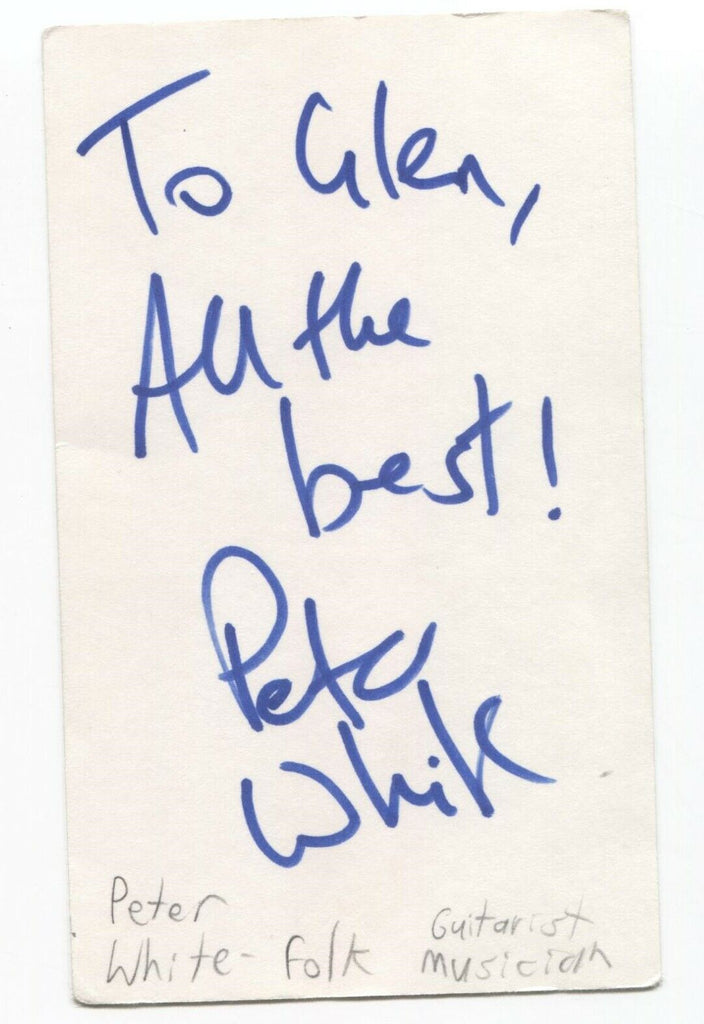 To Glen,
All the
best!
Peter
White
Peter
White - Folk
Guitarist
Musician